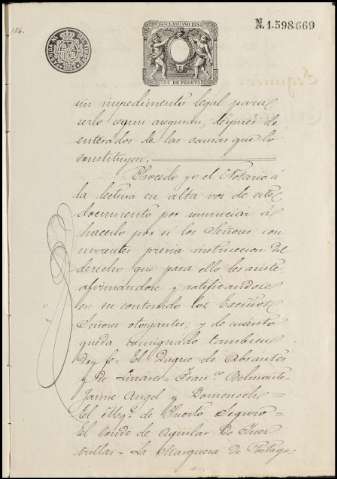 N. 1.598.669
sin impedimento legal para
serlo segun aseguran, después de
enterados de las causas que lo
constituyen.
Procedo yo el Notario á
la lectura en alta voz de este
documento por renunciar al
hacerlo por si los Señores con
currentes previa instruccion del
derecho que para ello les asiste
afirmandose y ratificandose
en su contenido los
Señores otorgantes, y de cuanto
queda consignado tambien
doy fe. El Duque de Abrantes
y de Linares. Fran.co Belmonte
Jaime Angel y
El Mrq.s de Puerto Seguro
El Conde de Aguilar de Ines
trillas - La Marquesa de